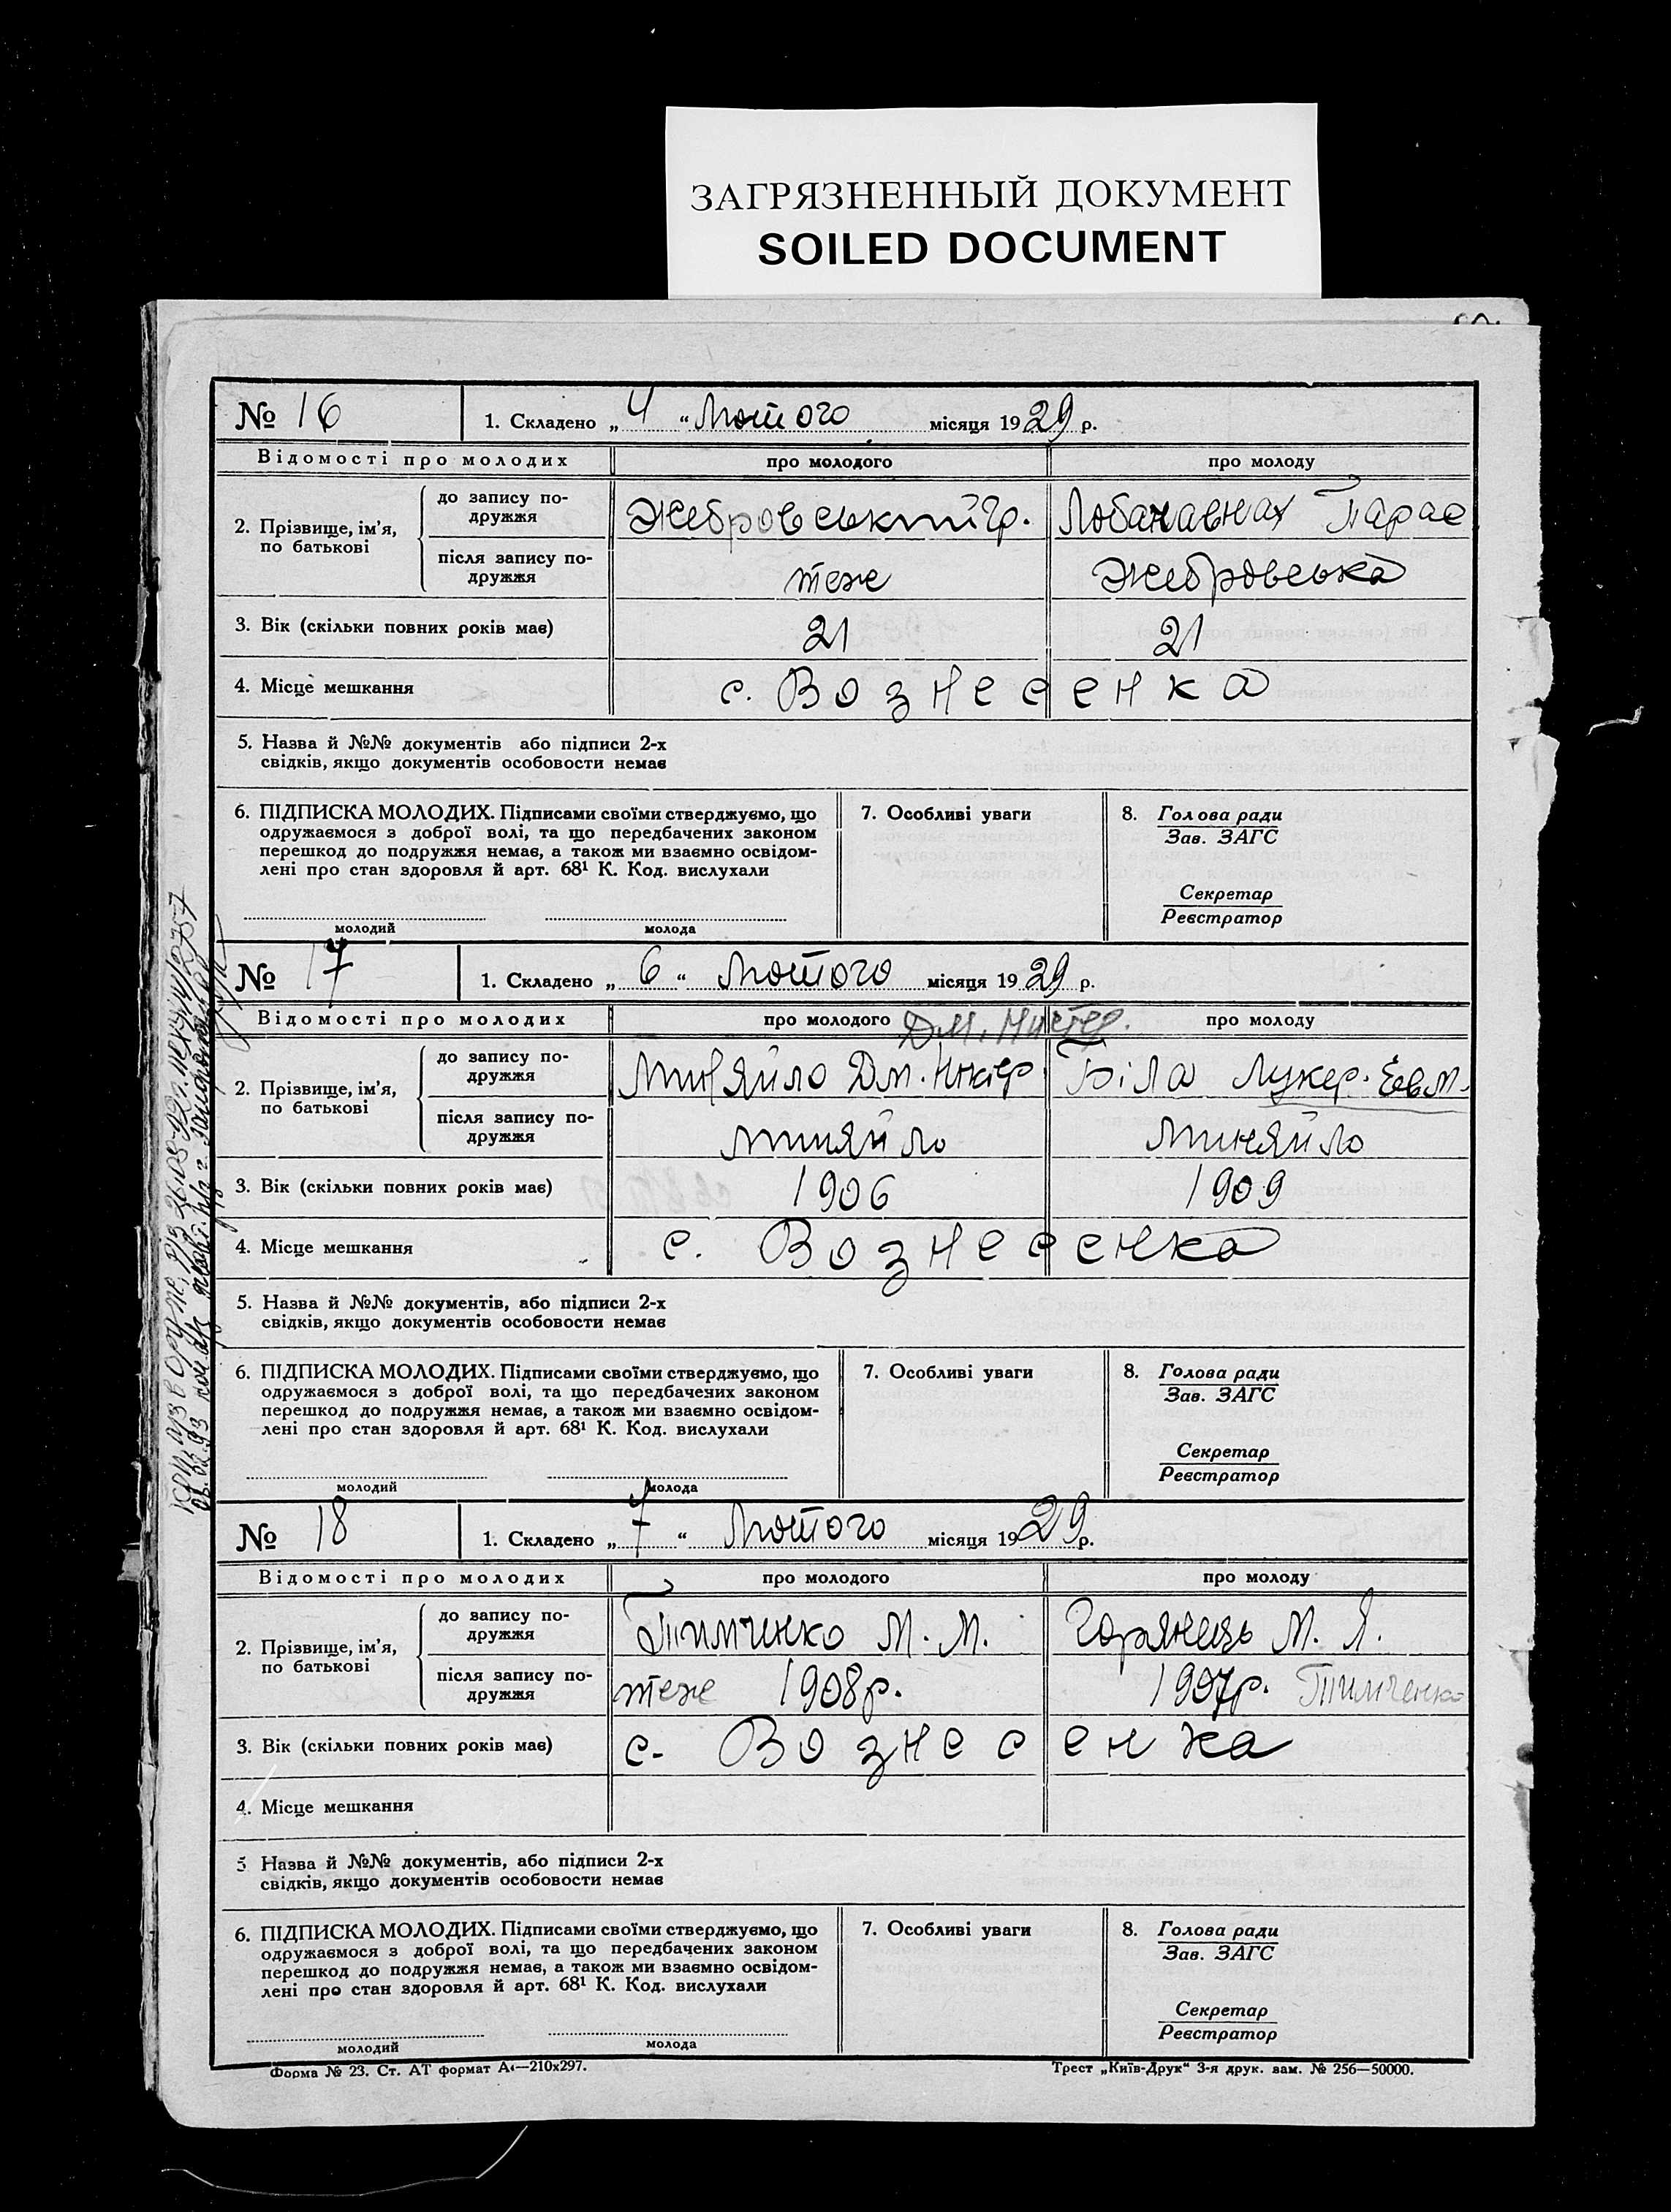 ЗАГРЯЗНЕННЫЙ ДОКУМЕНТ
SOILED DOCUMENT
№ 16 1. Складено „ 4 “ Лютого місяця 1929 р.
Відомості про молодих про молодого про молоду
2. Прізвище, ім’я, по батькові
до запису подружжя Жебровський Гр.
після запису подружжя теж Жебровська
3. Вік (скільки повних років має) 21 21
4. Місце мешкання с. Вознесенка
5. Назва й №№ документів або підписи 2-х
свідків, якщо документів особовости немає
6. ПІДПИСКА МОЛОДИХ. Підписами своїми стверджуємо, що
одружаємося з доброї волі, та що передбачених законом
перешкод до подружжя немає, а також ми взаємно освідом-
лені про стан здоровля й арт. 68¹ К. Код. вислухали
молодий молода
7. Особливі уваги
8. Голова ради
Зав. ЗАГС
Секретар
Реєстратор
№ 17 1. Складено „ 6 “ Лютого місяця 1929 р.
Відомості про молодих про молодого про молоду
2. Прізвище, ім’я, по батькові
до запису подружжя Миняйло Дм. Біла Лукер. Евм.
після запису подружжя Миняйло Миняйло
3. Вік (скільки повних років має) 1906 1909
4. Місце мешкання с. Вознесенка
5. Назва й №№ документів, або підписи 2-х
свідків, якщо документів особовости немає
6. ПІДПИСКА МОЛОДИХ. Підписами своїми стверджуємо, що
одружаємося з доброї волі, та що передбачених законом
перешкод до подружжя немає, а також ми взаємно освідом-
лені про стан здоровля й арт. 68¹ К. Код. вислухали
молодий молода
7. Особливі уваги
8. Голова ради
Зав. ЗАГС
Секретар
Реєстратор
№ 18 1. Складено „ 7 “ Лютого місяця 1929 р.
Відомості про молодих про молодого про молоду
2. Прізвище, ім’я, по батькові
до запису подружжя Тимченко М. М. Горянець М. Я.
після запису подружжя теж 1908р. 1907р. Тимченко
3. Вік (скільки повних років має) с. Вознесенка
4. Місце мешкання
5 Назва й №№ документів, або підписи 2-х
свідків, якщо документів особовости немає
6. ПІДПИСКА МОЛОДИХ. Підписами своїми стверджуємо, що
одружаємося з доброї волі, та що передбачених законом
перешкод до подружжя немає, а також ми взаємно освідом-
лені про стан здоровля й арт. 68¹ К. Код. вислухали
молодий молода
7. Особливі уваги
8. Голова ради
Зав. ЗАГС
Секретар
Реєстратор
Форма № 23. Ст. АТ формат А4—210х297. Трест „Київ-Друк“ 3-я друк. зам. № 256—50000.